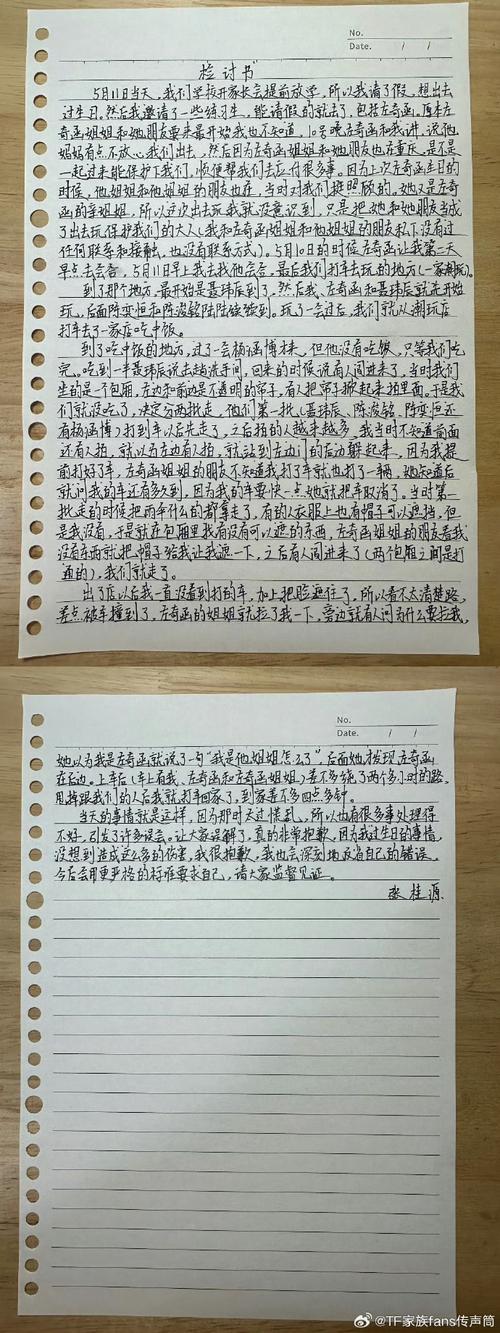 No.
Date. / /
检讨书
5月11日当天，我们学校开家长会提前放学，所以我请了假，想出去
过生日，然后我邀请了一些练习生，能请假的就去了，包括左奇函。原本左
奇函姐姐和她朋友要来最开始我也不知道，10号晚左奇函和我讲，说他
妈妈有点不放心我们出去，然后因为左奇函姐姐和她朋友也在重庆，是不是
一起过来能保护下我们，顺便帮我们去应付很多事，因为上次左奇函生日的
时候，他姐姐和他姐姐的朋友也在，当时对我们挺照顾的，她又是左奇
函的亲姐姐，所以这次出去玩我就没意识到，只是把她和她朋友当成
了出去玩保护我们的大人（我和左奇函姐姐和他姐姐的朋友私下没有过
任何联系和接触，也没有联系方式）。5月10日的时候左奇函让我第二天
早点去会合，5月11日早上我去找他会合，最后我们打车去玩的地方（一家潮玩）。
到了那个地方，最开始是聂玮辰到了，然后我、左奇函和聂玮辰就先开始
玩，后面陈奕恒和陈浚铭陆陆续续到。玩了一会过后，我们就从潮玩店
打车去了一家店吃中饭。
到了吃中饭的地方，过了一会杨涵博才来，但他没有吃饭，只等我们吃
完。吃到一半聂玮辰说出去趟洗手间，回来的时候说有人闯进来了，当时我们
坐的是一个包厢，左边和前边是不透明的帘子，有人把帘子掀起来拍里面。于是我
们就没吃了，决定分两批走，他们第一批（聂玮辰、陈浚铭、陈奕恒还
有杨涵博）打到车以后先走了，之后拍的人越来越多，我当时不知道前面
还有人拍，就以为左边有人拍，就站到左边门的后边躲起来，因为我提
前打好了车，左奇函姐姐的朋友不知道我打了车就也打了一辆，她知道后
就问我的车还有多久到，因为我的车要快一点她就把车取消了，当时第一
批走的时候把雨伞什么的都拿走了，有的人衣服上也有帽子可以遮挡，但
是我没有，于是就在包厢里找有没有可以遮的东西，左奇函姐姐的朋友看我
没有东西就把帽子给我让我遮一下，之后有人闯进来了（两个包厢之间是打
通的），我们就走了。
出了店以后我一直没看到打的车，加上把脸遮住了，所以看不太清楚路，
差点被车撞到了，左奇函的姐姐就拉了我一下，旁边就有人问为什么要拉我，
No.
Date. / /
她以为我是左奇函就说了一句“我是他姐姐怎么了”，后面她才发现左奇函
在后边。上车后（车上有我、左奇函和左奇函姐姐）差不多绕了两个多小时的路，
甩掉跟我们的人后我就打车回家了，到家差不多四点多钟。
当天的事情就是这样，因为那时太过慌乱，所以也有很多事处理得
不好，引发了许多误会。让大家误解了，真的非常抱歉，因为我过生日的事情，
没想到造成这么多的伤害，我很抱歉，我也会深刻地反省自己的错误，
今后会用更严格的标准要求自己，请大家监督见证。
张桂源
@TF家族fans传声筒